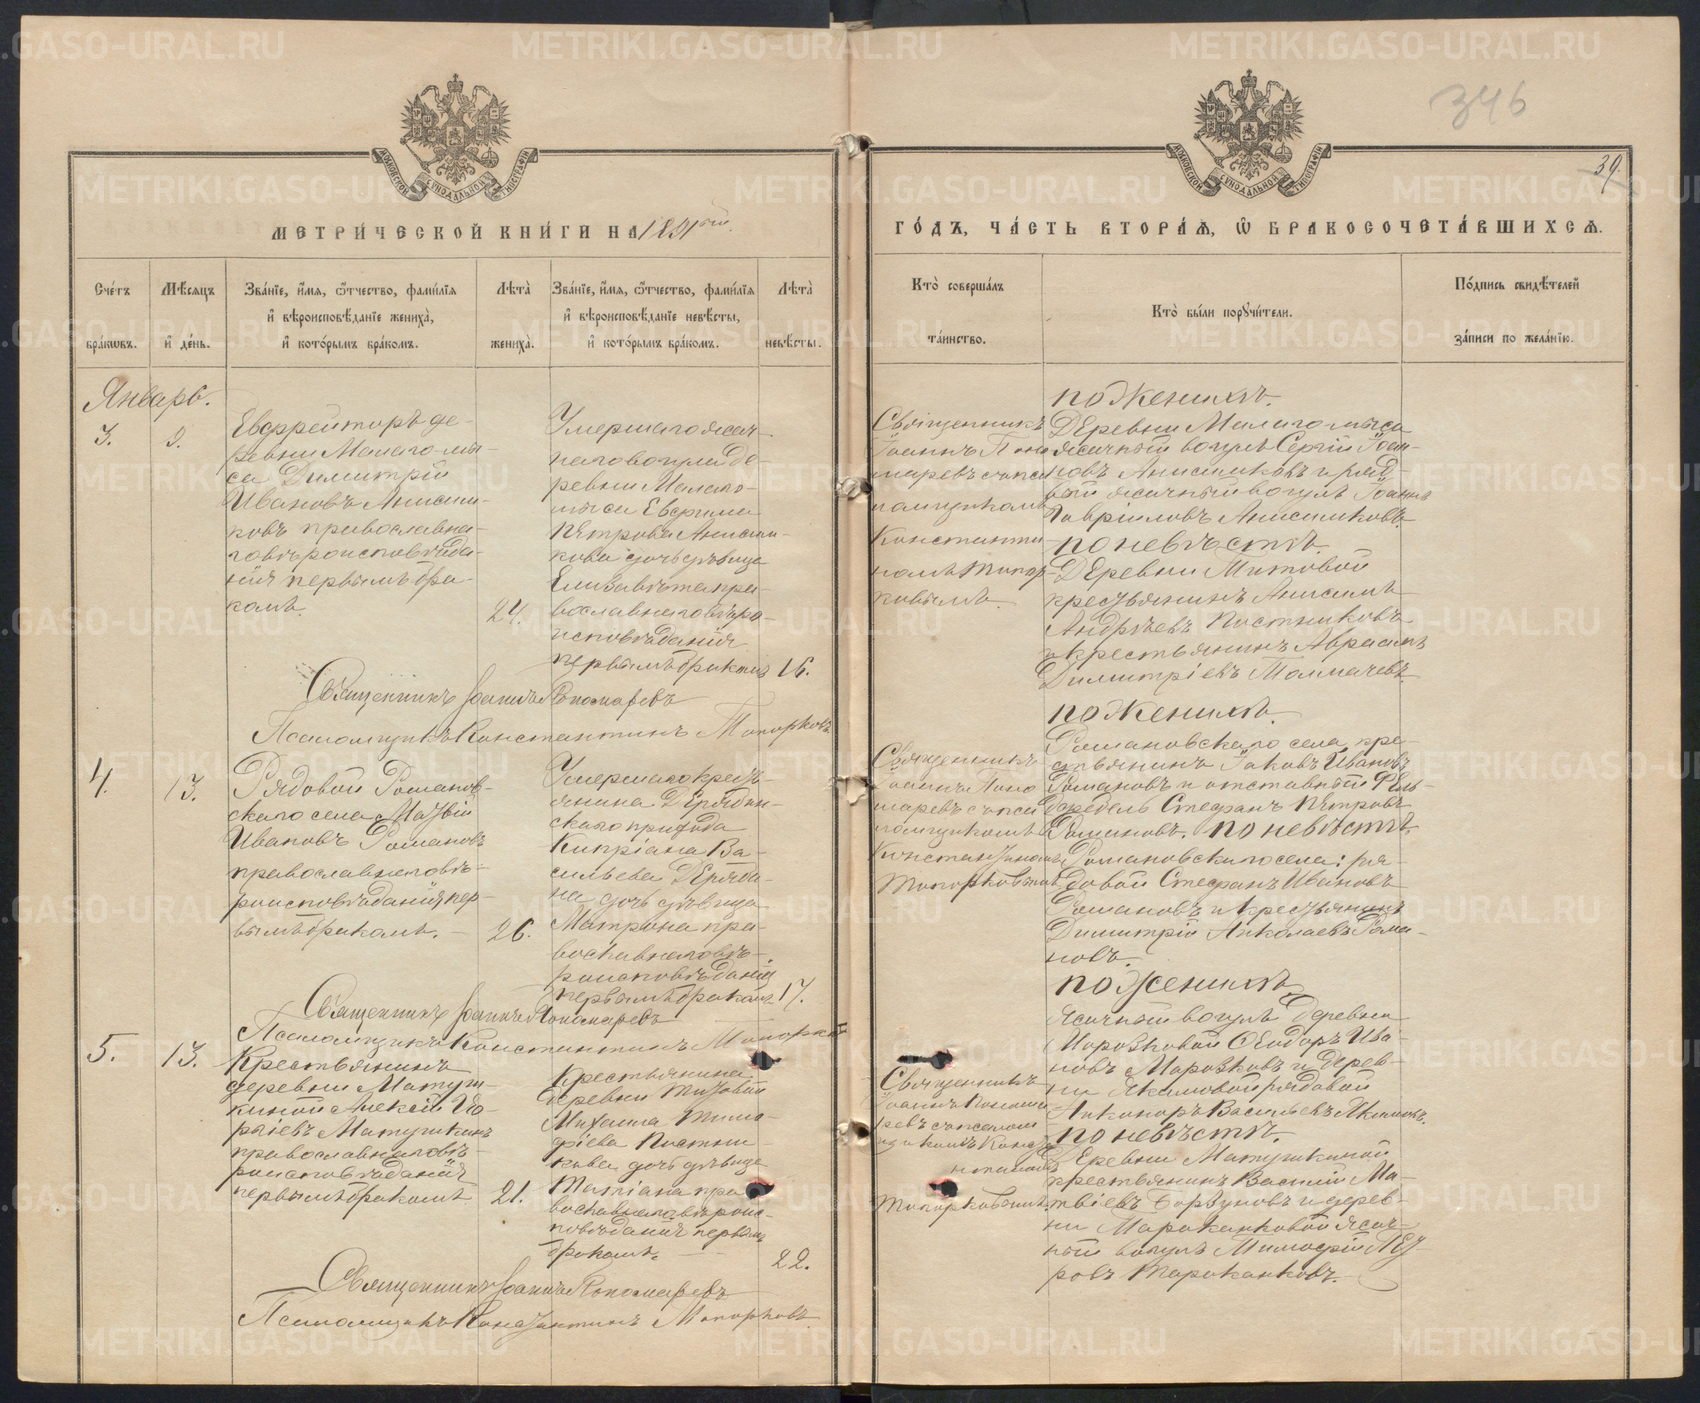 346
39.
МЕТРИ́ЧЕСКОЙ КНИ́ГИ НА 1891 год.
ГО́ДЪ, ЧА́СТЬ ВТОРА́Ѧ, Ѽ БРАКОСОЧЕТА́ВШИХСѦ.
Сче́тъ бра́кωвъ.
Мѣ́сяцъ и҆ де́нь.
Зва́нїе, и҆́мѧ, ѻ҆́тчество, фами́лїѧ
и҆ вѣроисповѣ́данїе жениха̀,
и҆ кото́рымъ бра́комъ.
Лѣта̀ жениха̀.
Зва́нїе, и҆́мѧ, ѻ҆́тчество, фами́лїѧ
и҆ вѣроисповѣ́данїе невѣ́сты,
и҆ кото́рымъ бра́комъ.
Лѣта̀ невѣ́сты.
Кто̀ соверша́лъ
та́инство.
Кто̀ бы́ли порꙋчи́тели.
По́дпись свидѣ́телей
за́писи по жела́нїю.
Январь.
3.
9.
Евфрейторъ де-
ревни Малаго-мы-
са Димитрій
Ивановъ Анисим-
ковъ православна-
го вѣроисповѣда-
нія первымъ бра-
комъ.
24.
Умершаго ясач-
наго вогула де-
ревни Малаго-
мыса Евфима
Петрова Анисим-
кова дочь дѣвица
Елизавета пра-
вославнаго вѣро-
исповѣданія
первымъ бракомъ
16.
Священникъ
Іоаннъ Поно-
маревъ съ пса-
ломщикомъ
Константи-
номъ Топор-
ковымъ.
по женихѣ.
Деревни Малаго-мыса
ясачный вогулъ Сергій Іоан-
новъ Анисимковъ и
ясачный вогулъ Іоаннъ
Гавріиловъ Анисимковъ.
по невѣстѣ.
Деревни Митовой
крестьянинъ Анисимъ
Андреевъ Постниковъ
и крестьянинъ Авраамъ
Димитріевъ Толмачевъ.
Священникъ Іоаннъ Пономаревъ
Псаломщикъ Константинъ Топорковъ
4.
13.
Рядовой Романов-
скаго села Матвій
Ивановъ Романовъ
православнаго вѣ-
роисповѣданія пер-
вымъ бракомъ.
26.
Умершаго кресть-
янина Дерябин-
скаго прихода
Кипріана Ва-
сильева Деряби-
на дочь дѣвица
Матрона пра-
вославнаго вѣ-
роисповѣданія
первымъ бракомъ
17.
Священникъ
Іоаннъ Поно-
маревъ съ пса-
ломщикомъ
Константиномъ
Топорковымъ
по женихѣ.
Романовскаго села кре-
стьянинъ Іаковъ Ивановъ
Романовъ и отставной Фель-
дфебель Стефанъ Петровъ
Романовъ. по невѣстѣ.
Романовскаго села: ря-
довой Стефанъ Ивановъ
Романовъ и крестьянинъ
Димитрій Николаевъ Рома-
новъ.
Священникъ Іоаннъ Пономаревъ
Псаломщикъ Константинъ Топорковъ
5.
13.
Крестьянинъ
деревни Матуш-
киной Алексій
Матушкинъ
православнаго вѣ-
роисповѣданія
первымъ бракомъ
21.
Крестьянина
деревни Титовой
Михаила Тимо-
фіева Постни-
кова дочь дѣвица
Татіана пра-
вославнаго вѣроис-
повѣданія первымъ
бракомъ.
22.
Священникъ
Іоаннъ Понома-
ревъ съ псалом-
щикомъ Конста-
нтиномъ
Топорковымъ.
по женихѣ
Ясачный вогулъ деревни
Морозковой Ѳеодоръ Ива-
новъ Морозковъ и дерев-
ни Якимовой рядовой
Никаноръ Васильевъ Якимовъ.
по невѣстѣ.
Деревни Матушкиной
крестьянинъ Василій Ма-
твіевъ и дерев-
ни Тараканковой ясач-
ный вогулъ Тимофій
Тараканковъ.
Священникъ Іоаннъ Пономаревъ
Псаломщикъ Константинъ Топорковъ.
METRIKI.GASO-URAL.RU